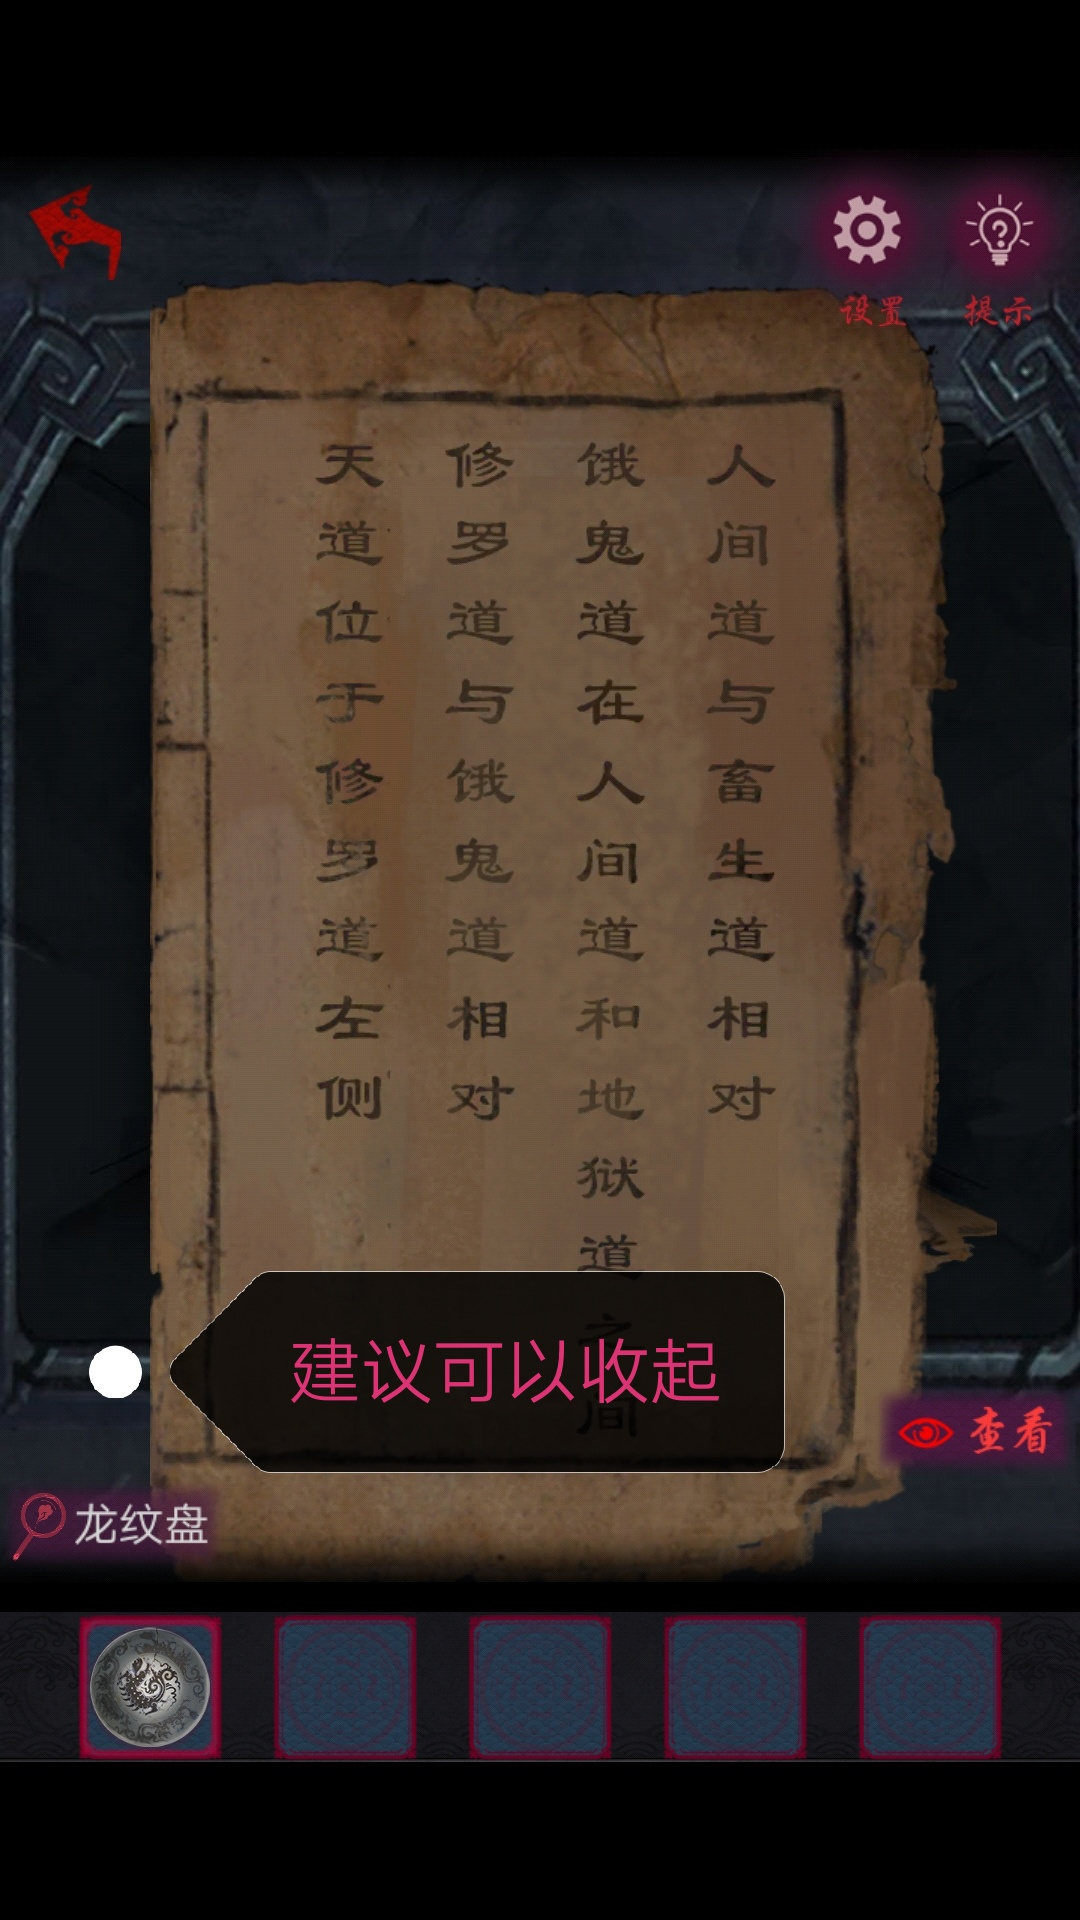 设置
提示
人间道与畜生道相对
饿鬼道在人间道和地狱道之间
修罗道与饿鬼道相对
天道位于修罗道左侧
建议可以收起
查看
龙纹盘